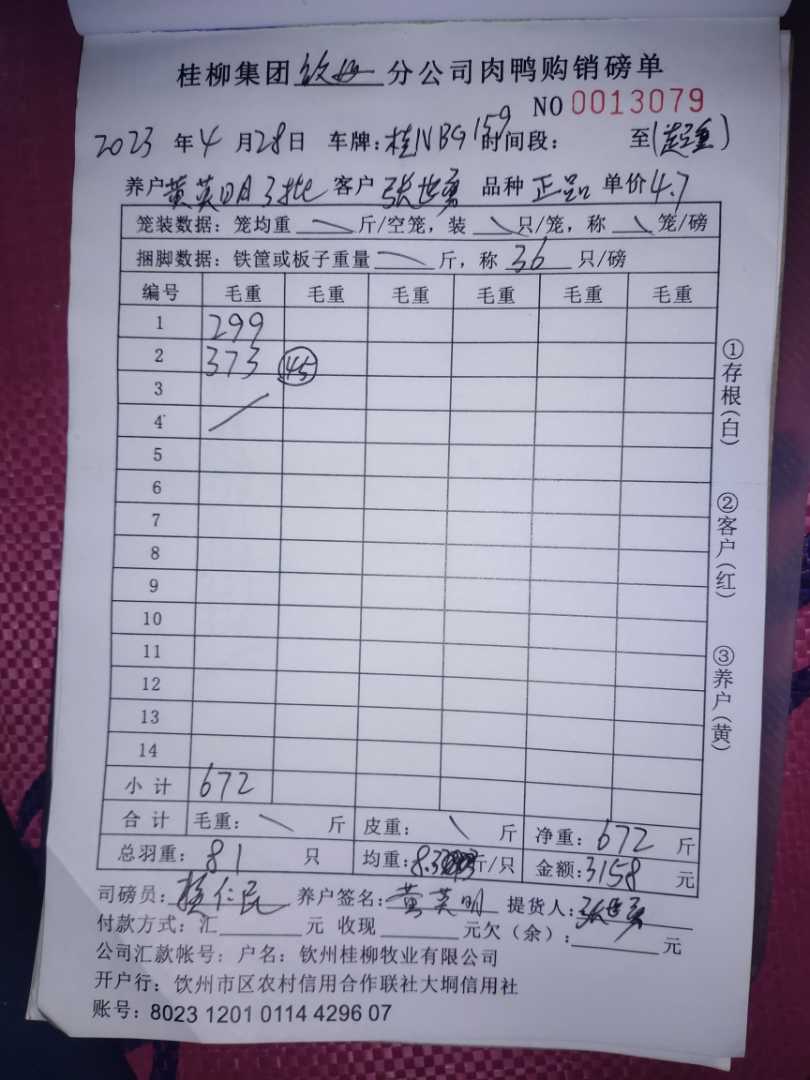 桂柳集团钦州分公司肉鸭购销磅单
NO 0013079
2023年4月28日 车牌:桂NBG159时间段: 至(超重)
养户黄英明3批 客户张世勇 品种正品 单价4.7
笼装数据:笼均重\斤/空笼,装\只/笼,称\笼/磅
捆脚数据:铁筐或板子重量\斤,称36只/磅
编号 毛重 毛重 毛重 毛重 毛重 毛重
1 299
2 373 45
3
4 /
5
6
7
8
9
10
11
12
13
14
小计 672
合计 毛重:\斤 皮重:\斤 净重:672斤
总羽重:81只 均重:8.3斤/只 金额:3158元
司磅员:仁民 养户签名:黄英明 提货人:张世勇
付款方式:汇 元 收现 元欠(余): 元
公司汇款帐号:户名:钦州桂柳牧业有限公司
开户行:饮州市区农村信用合作联社大垌信用社
账号:8023 1201 0114 4296 07
①存根(白)
②客户(红)
③养户(黄)